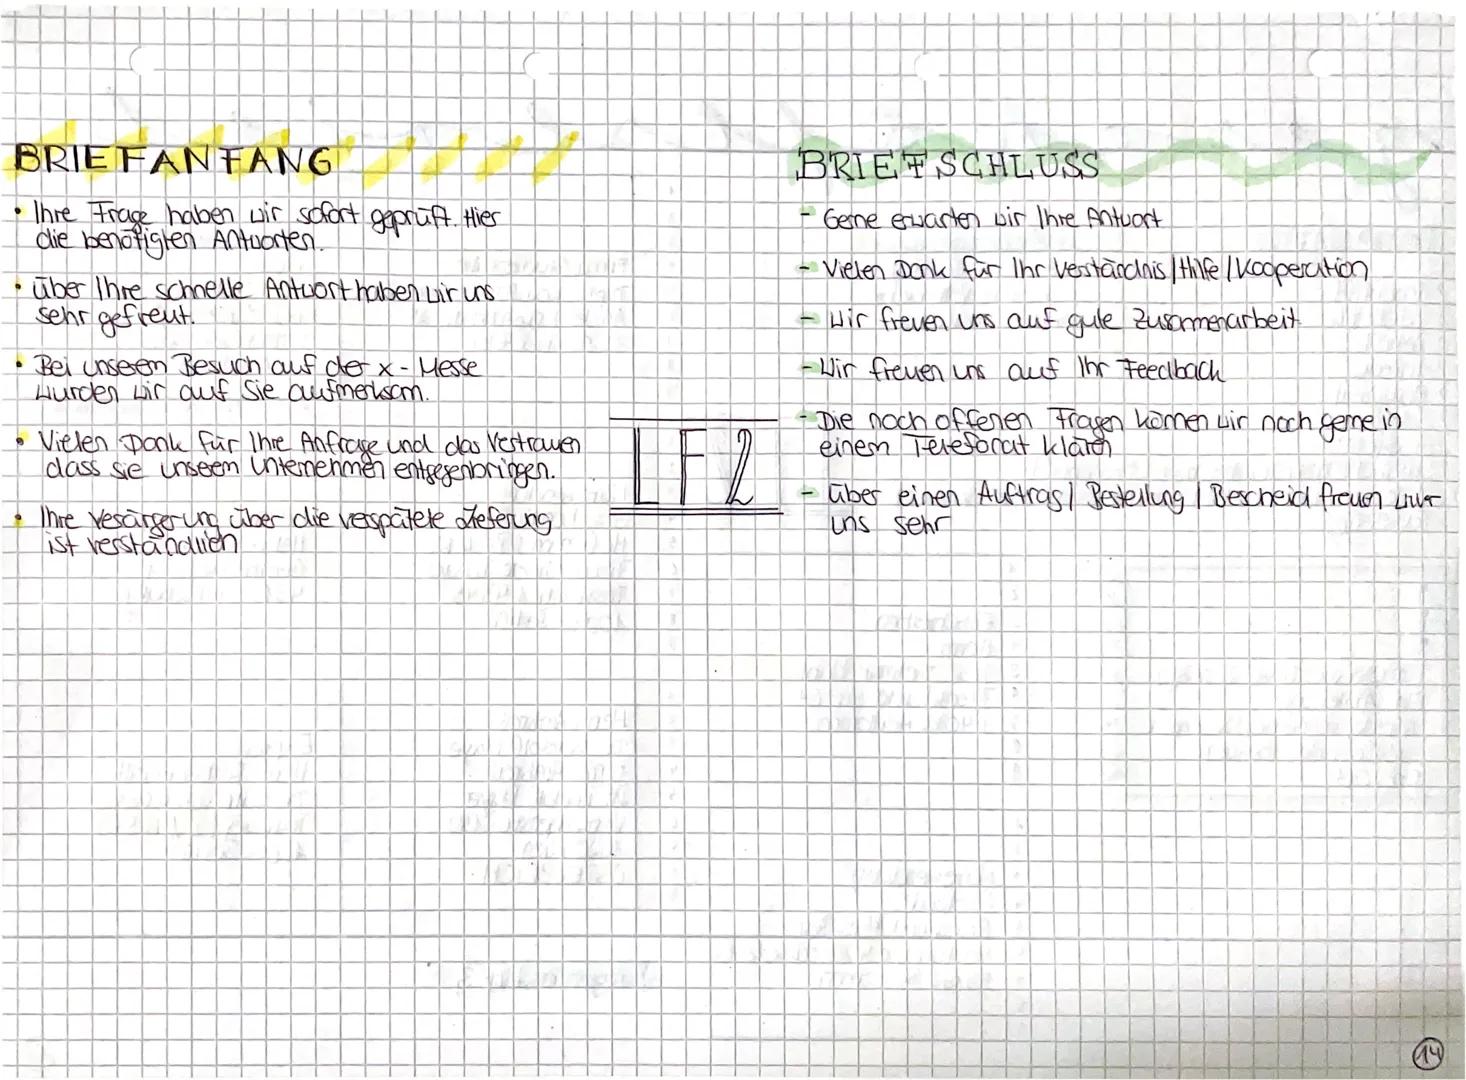 BRIEFANFANG
• Ihre Frage haben wir sofort geprüft. Hier
die benötigten Antworten.
• über Ihre schnelle Antwort haben wir uns
sehr gefreut.
• Bei unserem Besuch auf der x-Messe
wurden wir auf Sie aufmerksam.
• Vielen Dank für Ihre Anfrage und das Vertrauen
dass sie unserem Unternehmen entgegenbringen.
• Ihre Verärgerung über die verspätete Lieferung
ist verständlich
LF2
BRIEFSCHLUSS
- Gerne erwarten wir Ihre Antwort
- Vielen Dank für Ihr Verständnis / Hilfe / Kooperation
- Wir freuen uns auf gute Zusammenarbeit
- Wir freuen uns auf Ihr Feedback
- Die noch offenen Fragen können wir noch gerne in
einem Telefonat klären
- über einen Auftrag / Bestellung / Bescheid freuen wir
uns sehr
14